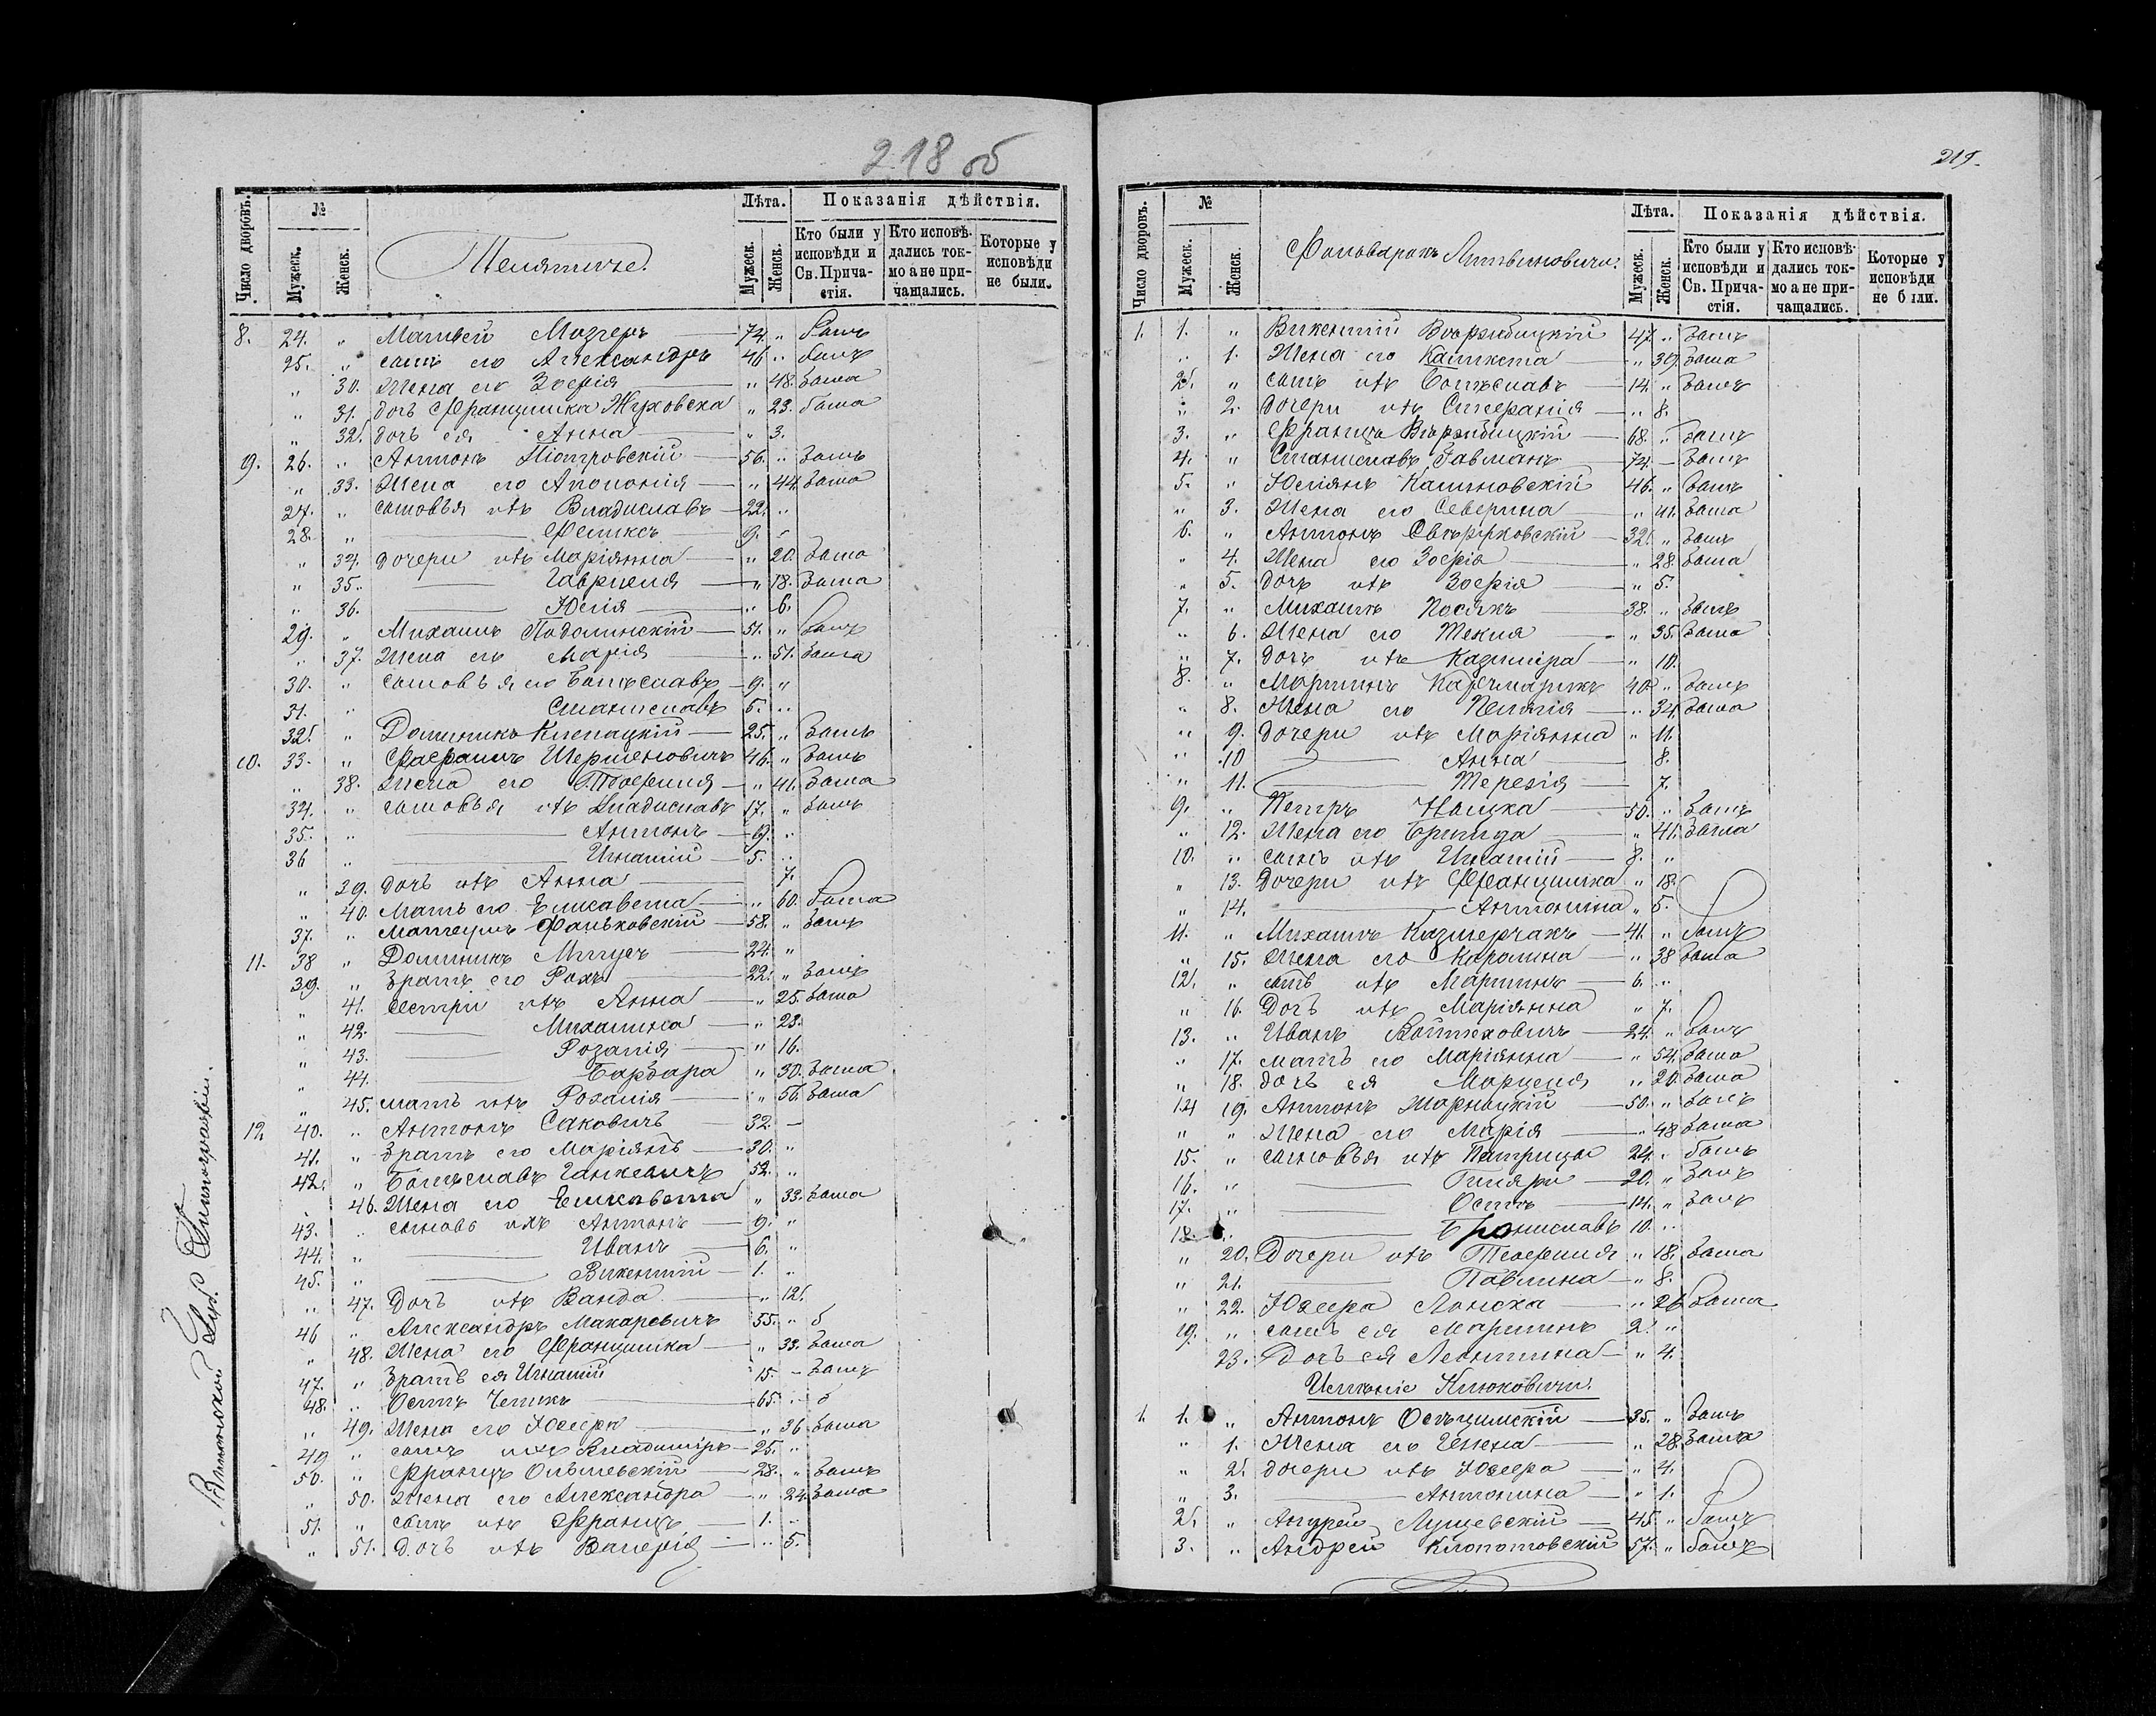 218 об
Число дворовъ. № Мужеск. Женск. Лѣта. Мужеск. Женск. Показанія дѣйствія.
Кто были у исповѣди и Св. Прича-стія. Кто исповѣ-дались ток-мо а не при-чащались. Которые у исповѣди не были.
8. 24. " Матвей Мозгеръ 74. " былъ
25. " сынъ его Александръ 46 " былъ
" 30. Жена его Зофія " 48. была
" 31. дочь Францишка Жуховска " 23. была
" 32. дочь ея Анна " 3.
19. 26. " Антонъ Піотровскій 56. " былъ
" 33. Жена его Аполонія " 44. была
27. " сыновья ихъ Владиславъ 22. "
28. " Феликсъ 9. "
" 34. дочери ихъ Маріянна " 20. была
" 35. Габриеля " 18. была
" 36. Юлія " 6.
29. " Михаилъ Подолинскій 51. " былъ
" 37. Жена его Марія " 51. была
30. " сыновья его Болеславъ 9. "
31. " Станиславъ 5. "
32. " Доминикъ 25. " былъ
10. 33. " 46. " былъ
" 38. Жена его " 41. была
34. " сыновья ихъ Владиславъ 17. " былъ
35. " Антонъ 9. "
36 " Игнатій 5. "
" 39. дочь ихъ Анна 7.
" 40. мать его Елисавета " 60. была
37. " Фаньковскій 58. " былъ
11. 38 " Доминикъ 24. "
39. " братъ его Рохъ 22. " былъ
" 41. сестри ихъ Анна " 25. была
" 42. Михалина " 23.
" 43. Розалія " 16.
" 44. Барбара " 30. была
" 45. мать ихъ Розалія " 56. была
12. 40. " Антонъ Саковичъ 32. —
41. " братъ его Маріянъ 30. "
42. " Болеславъ Ганкевичъ 52. "
46. Жена его Елисавета " 33. была
43. " сыновь ихъ Антонъ 9. "
44. " Иванъ 6. "
45. " Викентій 1. "
" 47. Дочь ихъ Ванда " 12.
46 " Александръ Макаревичъ 55. " б
" 48. Жена его Францишка " 33. была
47. " братъ ея Игнатій 15. — былъ
48. " Осипъ 65. " б
" 49. Жена его Юзефа " 36 была
49 " сынъ ихъ Владиміръ 25. "
50. " Францъ 28. " былъ
" 50. Жена его Александра " 24. была
51. " сынъ ихъ Францъ 1. "
" 51. Дочь ихъ Валерія " 5.
Виленской Губ. Типографіи.
219.
Число дворовъ. № Мужеск. Женск. Фольварокъ Литвиновичи. Лѣта. Мужеск. Женск. Показанія дѣйствія.
Кто были у исповѣди и Св. Прича-стія. Кто исповѣ-дались ток-мо а не при-чащались. Которые у исповѣди не были.
1. 1. " Викентій 47. " былъ
" 1. Жена его " 39. была
2. " сынъ ихъ Болеславъ 14. " былъ
" 2. дочери ихъ Стефанія " 8.
3. " Францъ 68. " былъ
4. " Станиславъ Гавманъ 74. — былъ
5. " Юліянъ Калиновскій 46. " былъ
" 3. Жена его Северина " 41. была
6. " Антонъ 32. " былъ
" 4. Жена его Зофія " 28. была
" 5. дочь ихъ Зофія " 5.
7. " Михаилъ 38. " былъ
" 6. Жена его Текля " 35. была
" 7. дочь ихъ Казиміра " 10.
8. " Мартинъ Карчмарикъ 40. " былъ
" 8. Жена его Пелягія " 34. была
" 9. дочери ихъ Маріянна " 11.
" 10 Анна 8.
" 11. Терезія 7.
9. " Петръ Нацка 50. " былъ
" 12. Жена его Бригида " 41. была
10. " сынъ ихъ Игнатій 8. "
" 13. Дочери ихъ Францишка " 18.
" 14. Антонина " 5.
11. " Михаилъ Казмерчакъ 41. " былъ
" 15. Жена его Каролина " 38 была
12. " сынъ ихъ Мартинъ 6. "
" 16. Дочь ихъ Маріянна " 7.
13. " Иванъ Войтеховичъ 24. " былъ
" 17. мать его Маріянна " 54. была
" 18. дочь ея Марцеля " 20. была
14 19. Антонъ 50. " былъ
" " Жена его Марія " 48 была
15. " сыновья ихъ Патрицы 24. " былъ
16. " Гиляри 20. " былъ
17. " Осипъ 14. " былъ
18. " Брониславъ 10. "
" 20. Дочери ихъ Теофилия " 18. была
" 21. Павлина " 8.
" 22. Юзефа " 26 была
19. " сынъ ея Мартинъ 2. "
23. Дочь ея Леонтина " 4.
Имѣніе Клюковичи.
1. 1. " Антонъ 35. " былъ
" 1. Жена его Гелена " 28. была
" 2. дочери ихъ Юзефа " 4.
" 3. Антонина " 1.
2. " Андрей Лущевскій 45 " былъ
3. " Андрей Клопотовскій 57. " былъ